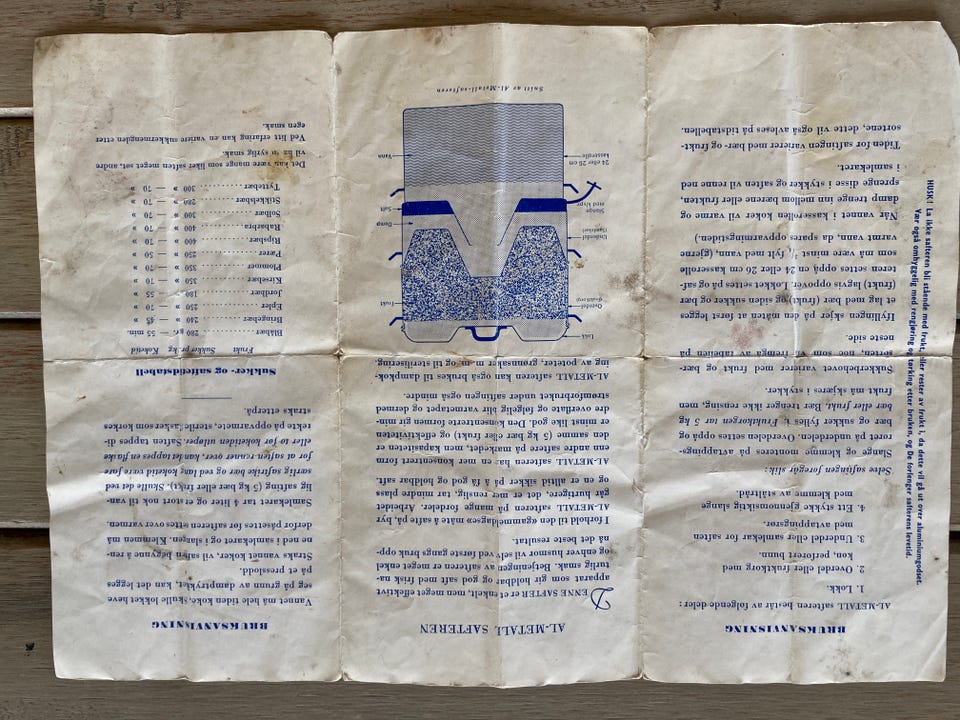 BRUKSANVISNING
AL-METALL safteren består av følgende deler:
1. Lokk.
2. Overdel eller fruktkorg med
perforert, bunn.
3. Underdel eller samlekar for saften
med avtappingsrør.
4. Ett stykke gjennomsiktig slange
med klemme av ståltråd.
Selve saftingen foregår slik:
Slange og klemme monteres på avtappings-
røret på underdelen. Overdelen settes oppå og
bær og sukker fylles i. Fruktkorgen tar 5 kg
bær eller frukt. Bær trenger ikke rensing, men
frukt må skjæres i stykker.
Sukkerbehovet varierer med frukt og bær-
sorten, noe som vil fremgå av tabellen på
neste side.
Ifyllingen skjer på den måten at først legges
et lag med bær (frukt) og siden sukker og bær
(frukt) lagvis oppover. Lokket settes på og saf-
teren settes oppå en 24 eller 26 cm kasserolle
som må være minst ¾ fylt med vann, (gjerne
varmt vann, da spares oppvarmingstiden).
Når vannet i kasserollen koker vil varme og
damp trenge inn mellom bærene eller frukten,
sprenge disse i stykker og saften vil renne ned
i samlekaret.
Tiden for saftingen varierer med bær- og frukt-
sortene, dette vil også avleses på tidstabellen.
HUSK! La ikke safteren bli stående med frukt, eller rester av frukt i, da dette vil gå ut over aluminiumgodset.
Vær også omhyggelig med rengjøring og tørking etter bruken, og De forlenger safterens levetid.
AL-METALL SAFTEREN
DENNE SAFTER er et enkelt, men meget effektivt
apparat som gir holdbar og god saft med frisk na-
turlig smak. Betjeningen av safteren er meget enkel
og enhver husmor vil selv ved første gangs bruk opp-
nå det beste resultat.
I forhold til den gammeldagse måte å safte på, byr
AL-METALL safteren på mange fordeler. Arbeidet
går hurtigere, det er mer renslig, tar mindre plass
og en er alltid sikker på å få god og holdbar saft.
AL-METALL safteren har en mer konsentrert form
enn andre saftere på markedet, men kapasiteten er
den samme (5 kg bær eller frukt) og effektiviteten
er minst like god. Den konsentrerte formen gir min-
dre overflate og følgelig blir varmetapet og dermed
strømforbruket under saftingen også mindre.
AL-METALL safteren kan også brukes til dampkok-
ing av poteter, grønnsaker m. m. og til sterilisering.
Lokk
Overdel
(fruktkorg)
Frukt
Underdel
(samlekar)
Damp
Slange
med klype
Saft
24 eller 26 cm
kasserolle
Vann
Snitt av Al-Metall-safteren
BRUKSANVISNING
Vannet må hele tiden koke, skulle lokket heve
seg på grunn av damptrykket, kan det legges
på et presslodd.
Straks vannet koker, vil saften begynne å ren-
ne ned i samlekaret og i slangen. Klemmen må
derfor påsettes før safteren settes over varmen.
Samlekaret tar 4 liter og er stort nok til van-
lig safting (5 kg bær eller frukt). Skulle det ved
særlig saftrike bær og ved lang koketid være fare
for at saften renner over, kan det tappes en flaske
eller to før koketiden utløper. Saften tappes di-
rekte på oppvarmete, sterile flasker som korkes
straks etterpå.
Sukker- og saftetidstabell
Frukt Sukker pr. kg Koketid
Blåbær 200 gr. — 55 min.
Bringebær 240 » — 45 »
Epler 250 » — 70 »
Jordbær 180 » — 55 »
Kirsebær 350 » — 70 »
Plommer 350 » — 70 »
Pærer — 50 »
Ripsbær — 70 »
Rabarbra 400 » — 70 »
Solbær 300 » — 70 »
Stikkelsbær 280 » — 70 »
Tyttebær 300 » — 70 »
Det kan være mange som liker saften meget søt, andre
vil ha en syrlig smak.
Ved litt erfaring kan en variere sukkermengden etter
egen smak.